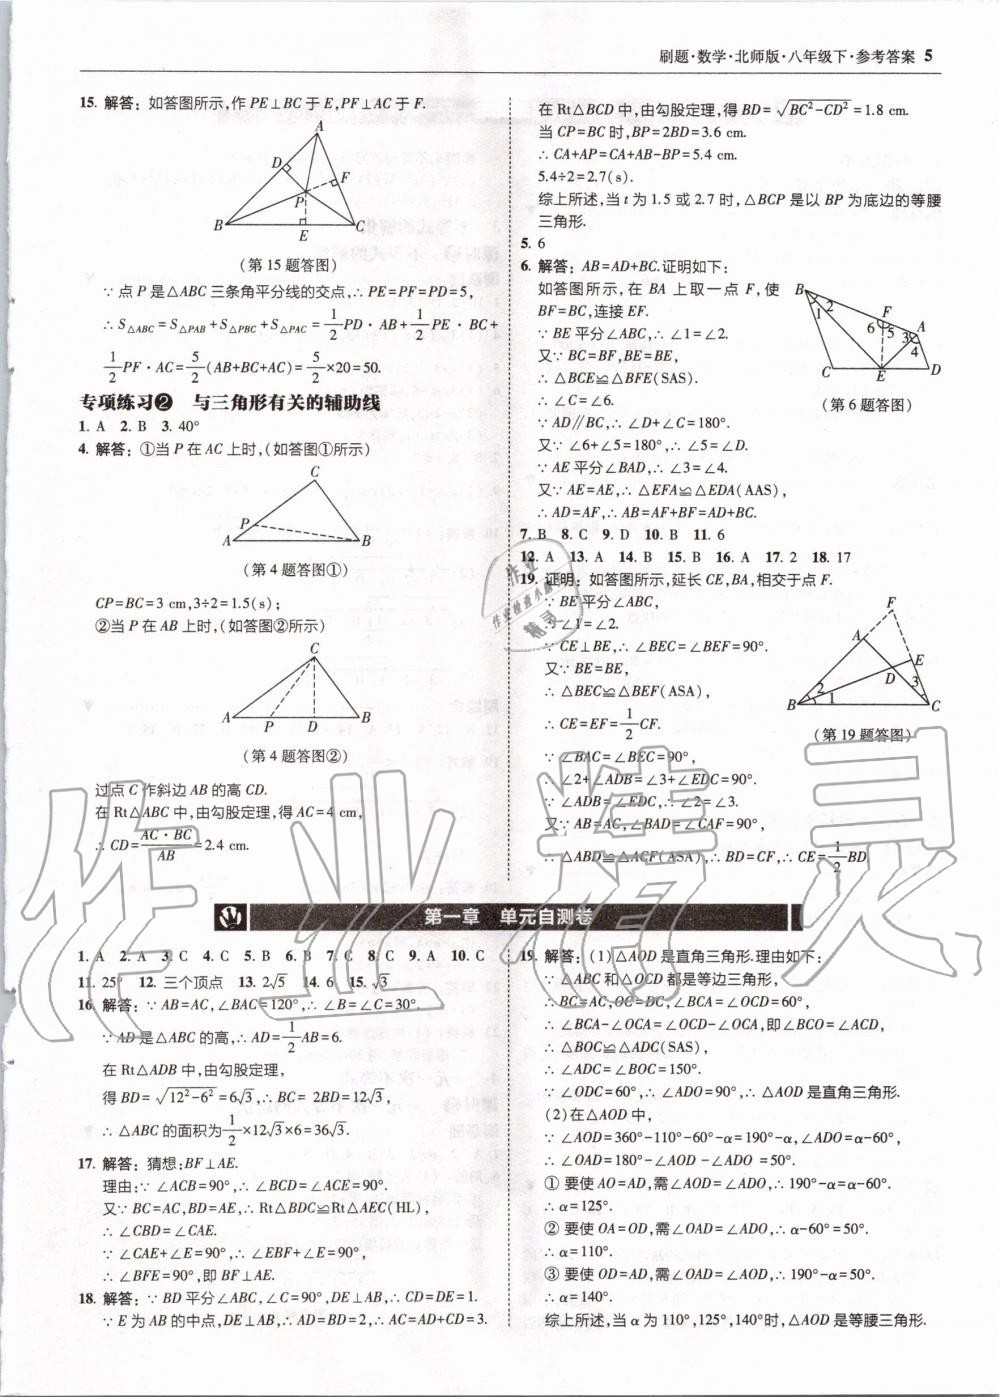 刷题·数学·北师版·八年级下·参考答案 5
15. 解答: 如答图所示,作 PE⊥BC 于 E,PF⊥AC 于 F.
A
D
F
P
B
E
C
(第 15 题答图)
∵点 P 是△ABC 三条角平分线的交点,∴PE=PF=PD=5,
∴S△ABC=S△PAB+S△PBC+S△PAC=1/2 PD·AB+1/2 PE·BC+
1/2 PF·AC=5/2(AB+BC+AC)=5/2×20=50.
专项练习❷ 与三角形有关的辅助线
1. A 2. B 3. 40°
4. 解答: ①当 P 在 AC 上时,(如答图①所示)
C
P
A
B
(第 4 题答图①)
CP=BC=3 cm,3÷2=1.5(s);
②当 P 在 AB 上时,(如答图②所示)
C
A
P
D
B
(第 4 题答图②)
过点 C 作斜边 AB 的高 CD.
在 Rt△ABC 中,由勾股定理,得 AC=4 cm,
∴CD=AC·BC/AB=2.4 cm.
在 Rt△BCD 中,由勾股定理,得 BD=√(BC²-CD²)=1.8 cm.
当 CP=BC 时,BP=2BD=3.6 cm.
∴CA+AP=CA+AB-BP=5.4 cm.
5.4÷2=2.7(s).
综上所述,当 t 为 1.5 或 2.7 时,△BCP 是以 BP 为底边的等腰
三角形.
5. 6
6. 解答: AB=AD+BC.证明如下:
如答图所示,在 BA 上取一点 F,使
BF=BC,连接 EF.
∵BE 平分∠ABC,∴∠1=∠2.
又∵BC=BF,BE=BE,
∴△BCE≌△BFE(SAS).
∴∠C=∠6.
∵AD∥BC,∴∠D+∠C=180°.
又∵∠6+∠5=180°,∴∠5=∠D.
∵AE 平分∠BAD,∴∠3=∠4.
又∵AE=AE,∴△EFA≌△EDA(AAS),
∴AD=AF,∴AB=AF+BF=AD+BC.
B
2
1
F
6
5
3
A
4
C
E
D
(第 6 题答图)
7. B 8. C 9. D 10. B 11. 6
12. A 13. A 14. B 15. B 16. A 17. 2 18. 17
19. 证明: 如答图所示,延长 CE,BA,相交于点 F.
∵BE 平分∠ABC,
∴∠1=∠2.
∵CE⊥BE,∴∠BEC=∠BEF=90°.
又∵BE=BE,
∴△BEC≌△BEF(ASA),
∴CE=EF=1/2 CF.
∵∠BAC=∠BEC=90°,
∴∠2+∠ADB=∠3+∠EDC=90°.
∵∠ADB=∠EDC,∴∠2=∠3.
又∵AB=AC,∠BAD=∠CAF=90°,
∴△ABD≌△ACF(ASA),∴BD=CF,∴CE=1/2 BD
F
A
E
D
2
1
3
B
C
(第 19 题答图)
作业精灵
第一章 单元自测卷
1. A 2. A 3. C 4. C 5. B 6. B 7. C 8. C 9. A 10. C
11. 25° 12. 三个顶点 13. 2√5 14. 6 15. √3
16. 解答: ∵AB=AC,∠BAC=120°,∴∠B=∠C=30°.
∵AD 是△ABC 的高,∴AD=1/2 AB=6.
在 Rt△ADB 中,由勾股定理,
得 BD=√(12²-6²)=6√3,∴BC= 2BD=12√3,
∴△ABC 的面积为1/2×12√3×6=36√3.
17. 解答: 猜想:BF⊥AE.
理由:∵∠ACB=90°,∴∠BCD=∠ACE=90°.
又∵BC=AC,BD=AE,∴Rt△BDC≌Rt△AEC(HL),
∴∠CBD=∠CAE.
∵∠CAE+∠E=90°,∴∠EBF+∠E=90°.
∴∠BFE=90°,即 BF⊥AE.
18. 解答: ∵BD 平分∠ABC,∠C=90°,DE⊥AB,∴CD=DE=1.
∵E 为 AB 的中点,DE⊥AB,∴AD=BD=2,∴AC=AD+CD=3.
19. 解答: (1)△AOD 是直角三角形.理由如下:
∵△ABC 和△OCD 都是等边三角形,
∴BC=AC,OC=DC,∠BCA=∠OCD=60°,
∴∠BCA-∠OCA=∠OCD-∠OCA,即∠BCO=∠ACD,
∴△BOC≌△ADC(SAS),
∴∠ADC=∠BOC=150°.
∵∠ODC=60°,∴∠ADO=90°,∴△AOD 是直角三角形.
(2)在△AOD 中,
∵∠AOD=360°-110°-60°-α=190°-α,∠ADO=α-60°,
∴∠OAD=180°-∠AOD-∠ADO=50°.
① 要使 AO=AD,需∠AOD=∠ADO,∴190°-α=α-60°.
∴α=125°.
② 要使 OA=OD,需∠OAD=∠ADO,∴α-60°=50°.
∴α=110°.
③ 要使 OD=AD,需∠OAD=∠AOD,∴190°-α=50°.
∴α=140°.
综上所述,当 α 为 110°,125°,140°时,△AOD 是等腰三角形.